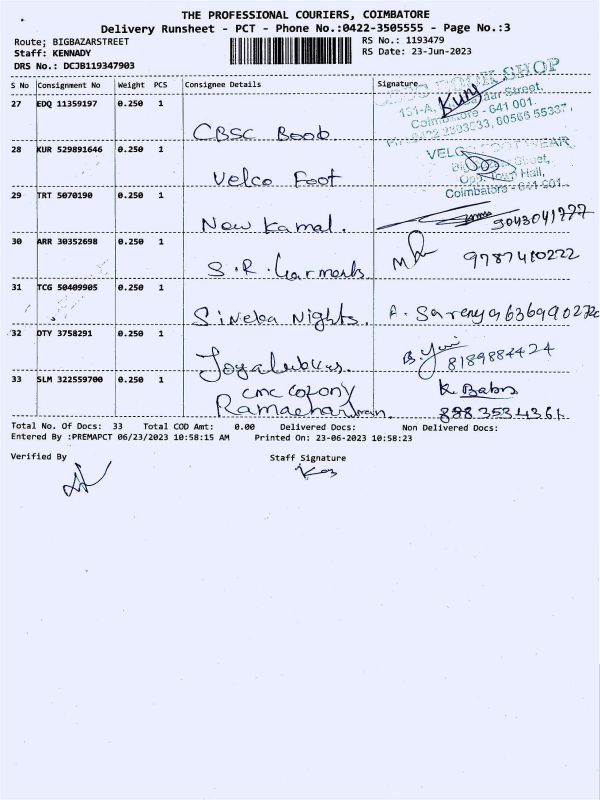 THE PROFESSIONAL COURIERS, COIMBATORE
Delivery Runsheet - PCT - Phone No.:0422-3505555 - Page No.:3
Route; BIGBAZARSTREET
Staff: KENNADY
DRS No.: DCJB119347903
RS No.: 1193479
RS Date: 23-Jun-2023
S No Consignment No Weight PCS Consignee Details Signature
27 EDQ 11359197 0.250 1
CBSC Boob
BOOK SHOP
Coimbatore - 641 001.
28 KUR 529891646 0.250 1
Velco Foot
VELCO FOOT WEAR
Street,
Opp. Town Hall,
Coimbatore - 641 001.
29 TRT 5070190 0.250 1
New Kamal. 9043041777
30 ARR 30352698 0.250 1
S.R. Garments 9787410222
31 TCG 50409905 0.250 1
Sineka Nights. A. Sarenya
32 DTY 3758291 0.250 1
8189884424
33 SLM 322559700 0.250 1
CMC COLONY
Ramachandran. K. Babu
Total No. Of Docs: 33 Total COD Amt: 0.00 Delivered Docs: Non Delivered Docs:
Entered By :PREMAPCT 06/23/2023 10:58:15 AM Printed On: 23-06-2023 10:58:23
Verified By Staff Signature